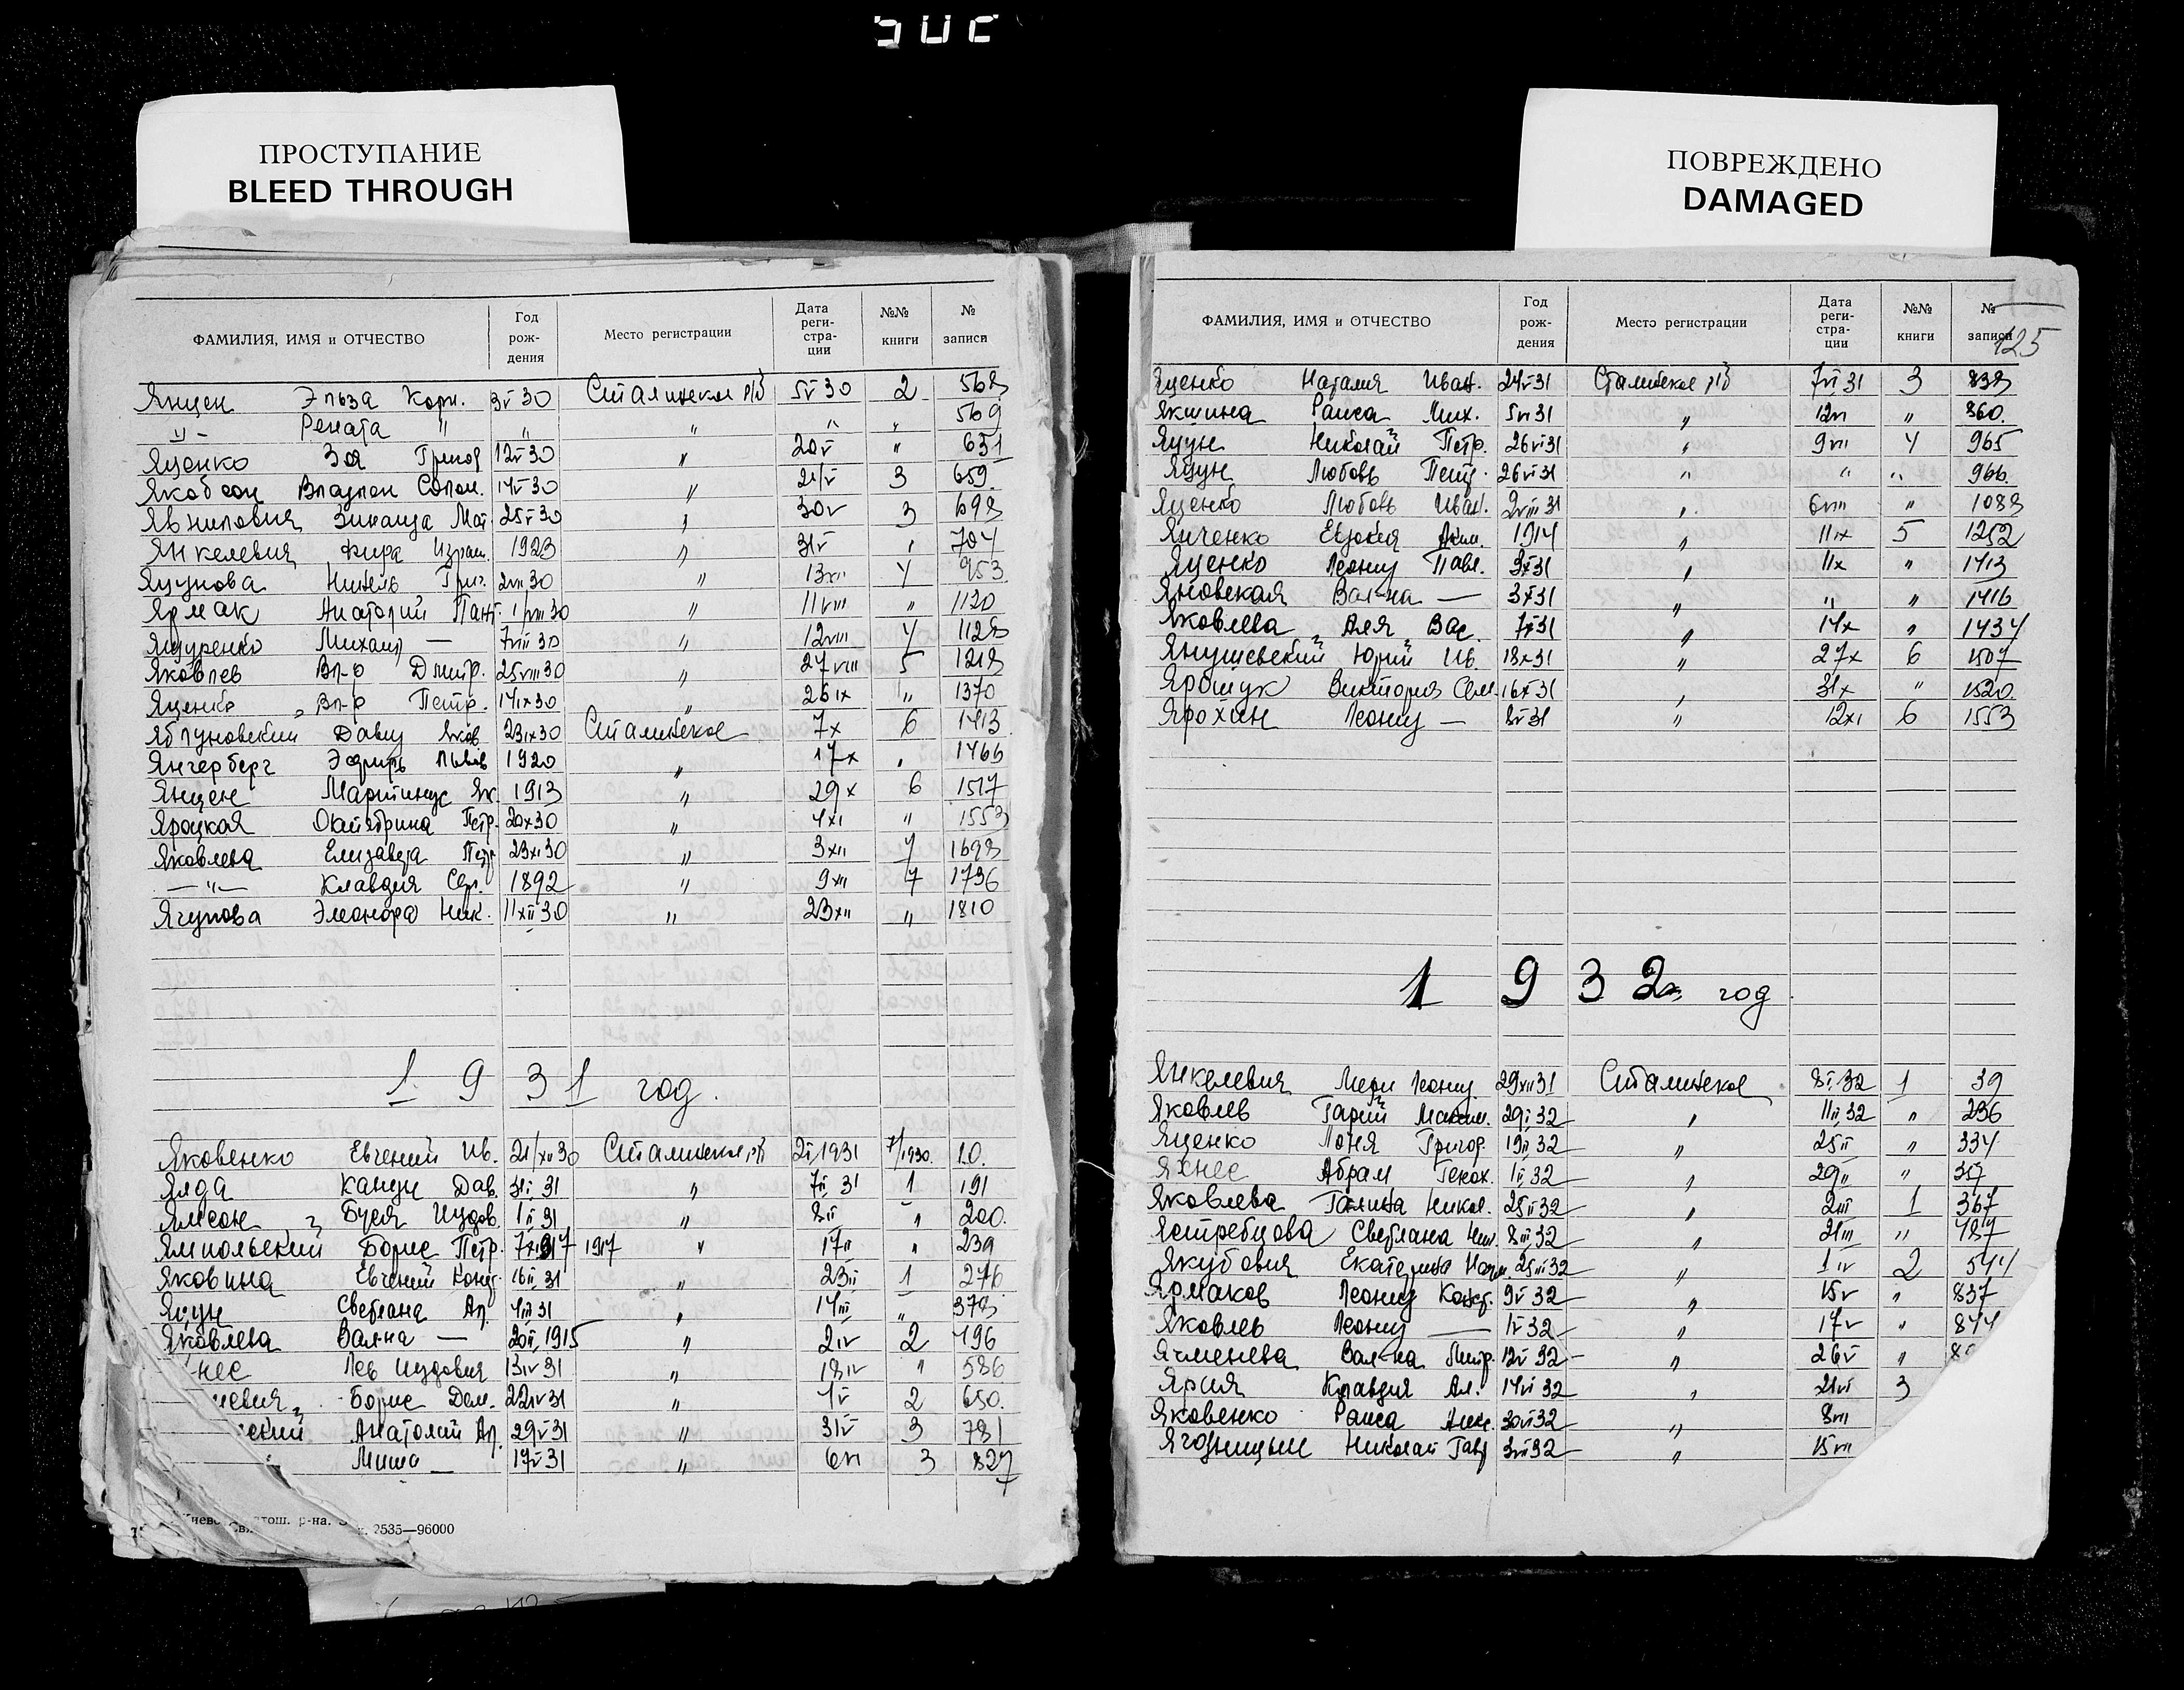 ПРОСТУПАНИЕ
BLEED THROUGH
ПОВРЕЖДЕНО
DAMAGED
ФАМИЛИЯ, ИМЯ и ОТЧЕСТВО Год рож- дения Место регистрации Дата реги- стра- ции №№ книги № записи
Янцен Эльза Корн. 3V30 Сталинское р/б 5V30 2 568
-"- Рената " " " " " 569
Яценко Зоя Григор 12V30 " 20V " 631
Якобсон Владлен Солом. 14V30 " 21/V 3 659.
Зинаида Мат. 25V30 " 30V 3 698
Янкелевич Фира Израил. 1923 " 31V " 704
Яцунова Нинель Григ. 2VII30 " 13VII 4 953
Ярмак Анатолий Пант. 1/VIII30 " 11VIII " 1120
Михаил — 7VIII30 " 12VIII 4 1128
Яковлев Вл-р Дмитр. 25VIII30 " 27VIII 5 1218
Яценко Вл-р Петр. 14IX30 " 26IX " 1370
Яблуновский Давид Яков 23IX30 Сталинское 7X 6 1413
Янгерберг Львов 1920 " 17X " 1466
Янцен Мартинус Як. 1913 " 29X 6 1517
Яроцкая Октябрина Петр. 20X30 " 4XI " 1553
Яковлева Елизавета Петр 23XI30 " 3XII 7 1698
—"— Клавдия Сер. 1892 " 9XII 7 1736
Ягупова Элеонора Ник. 11XII30 " 23XII " 1810
1931 год.
Яковенко Евгений Ив. 21/XII30 Сталинское р/б 2I,1931 7/1930. 10.
Ялда Дав. 31I31 " 7II,31 1 191
Ямсон Буся Иудов. 1II31 " 8II " 200.
Ямпольский Борис Петр. 1917 " 17II " 239
Яковина Евгений Конд. 16II31 " 23II 1 276
Яцун Светлана Ап. 4III31 " 14III " 378
Яковлева Вал-на — 20II,1915 " 2IV 2 496
нес Лев Иудович 13IV31 " 18IV " 586
левич Борис Дем. 22IV31 " 4V 2 650.
ский Анатолий Ап. 29V31 " 31V 3 781
Миша — 17V31 " 6VI 3 827
2535—96000
ФАМИЛИЯ, ИМЯ и ОТЧЕСТВО Год рож- дения Место регистрации Дата реги- стра- ции №№ книги № записи
125
Яценко Наталия Иван. 24V31 Сталинское р/б 7VI31 3 838
Якшина Раиса Мих. 5VI31 " 12VI " 860.
Яцун Николай Петр. 26VI31 " 9VII 4 965
Яцун Любовь Петр. 26VI31 " " " 966.
Яценко Любовь Иван. 2VIII31 " 6VIII " 1088
Янченко Евдокия 1914 " 11IX 5 1252
Яценко Леонид Павл. 3X31 " 11X " 1413
Яновская Вал-на — 3X31 " " " 1416
Яковлева Аля Вас. 7X31 " 14X " 1434
Янушевский Юрий Ив. 18X31 " 27X 6 1507
Ярощук Виктория Сем. 16X31 " 31X " 1520.
Ярохин Леонид — " 12XI 6 1553
1932 год
Янкелевич Мери Леонид. 29XII31 Сталинское 8I,32 1 39
Яковлев Гарий Максим. 29I32 " 11II,32 " 236
Яценко Лоня Григор. 19II32 " 25II " 334
Яхнес Абрам 1II,32 " 29II " 357
Яковлева Галина Никол. 25II32 " 2III 1 367
Ястребцова Светлана Ник. 8III,32 " 21III " 487
Якубович Екатерина 25III32 " 1IV 2 544
Ярмаков Леонид Конст. 9V32 " 15V " 837
Яковлев Леонид — 1V32 " 17V " 844
Ячменева Вал-на Митр. 12V32 " 26V "
Ярия Клавдия Ал. 14VI32 " 21VI 3
Яковенко Раиса Алек. 30VI32 " 8VII
Ягодницын Николай Гавр 3VII32 " 15VII